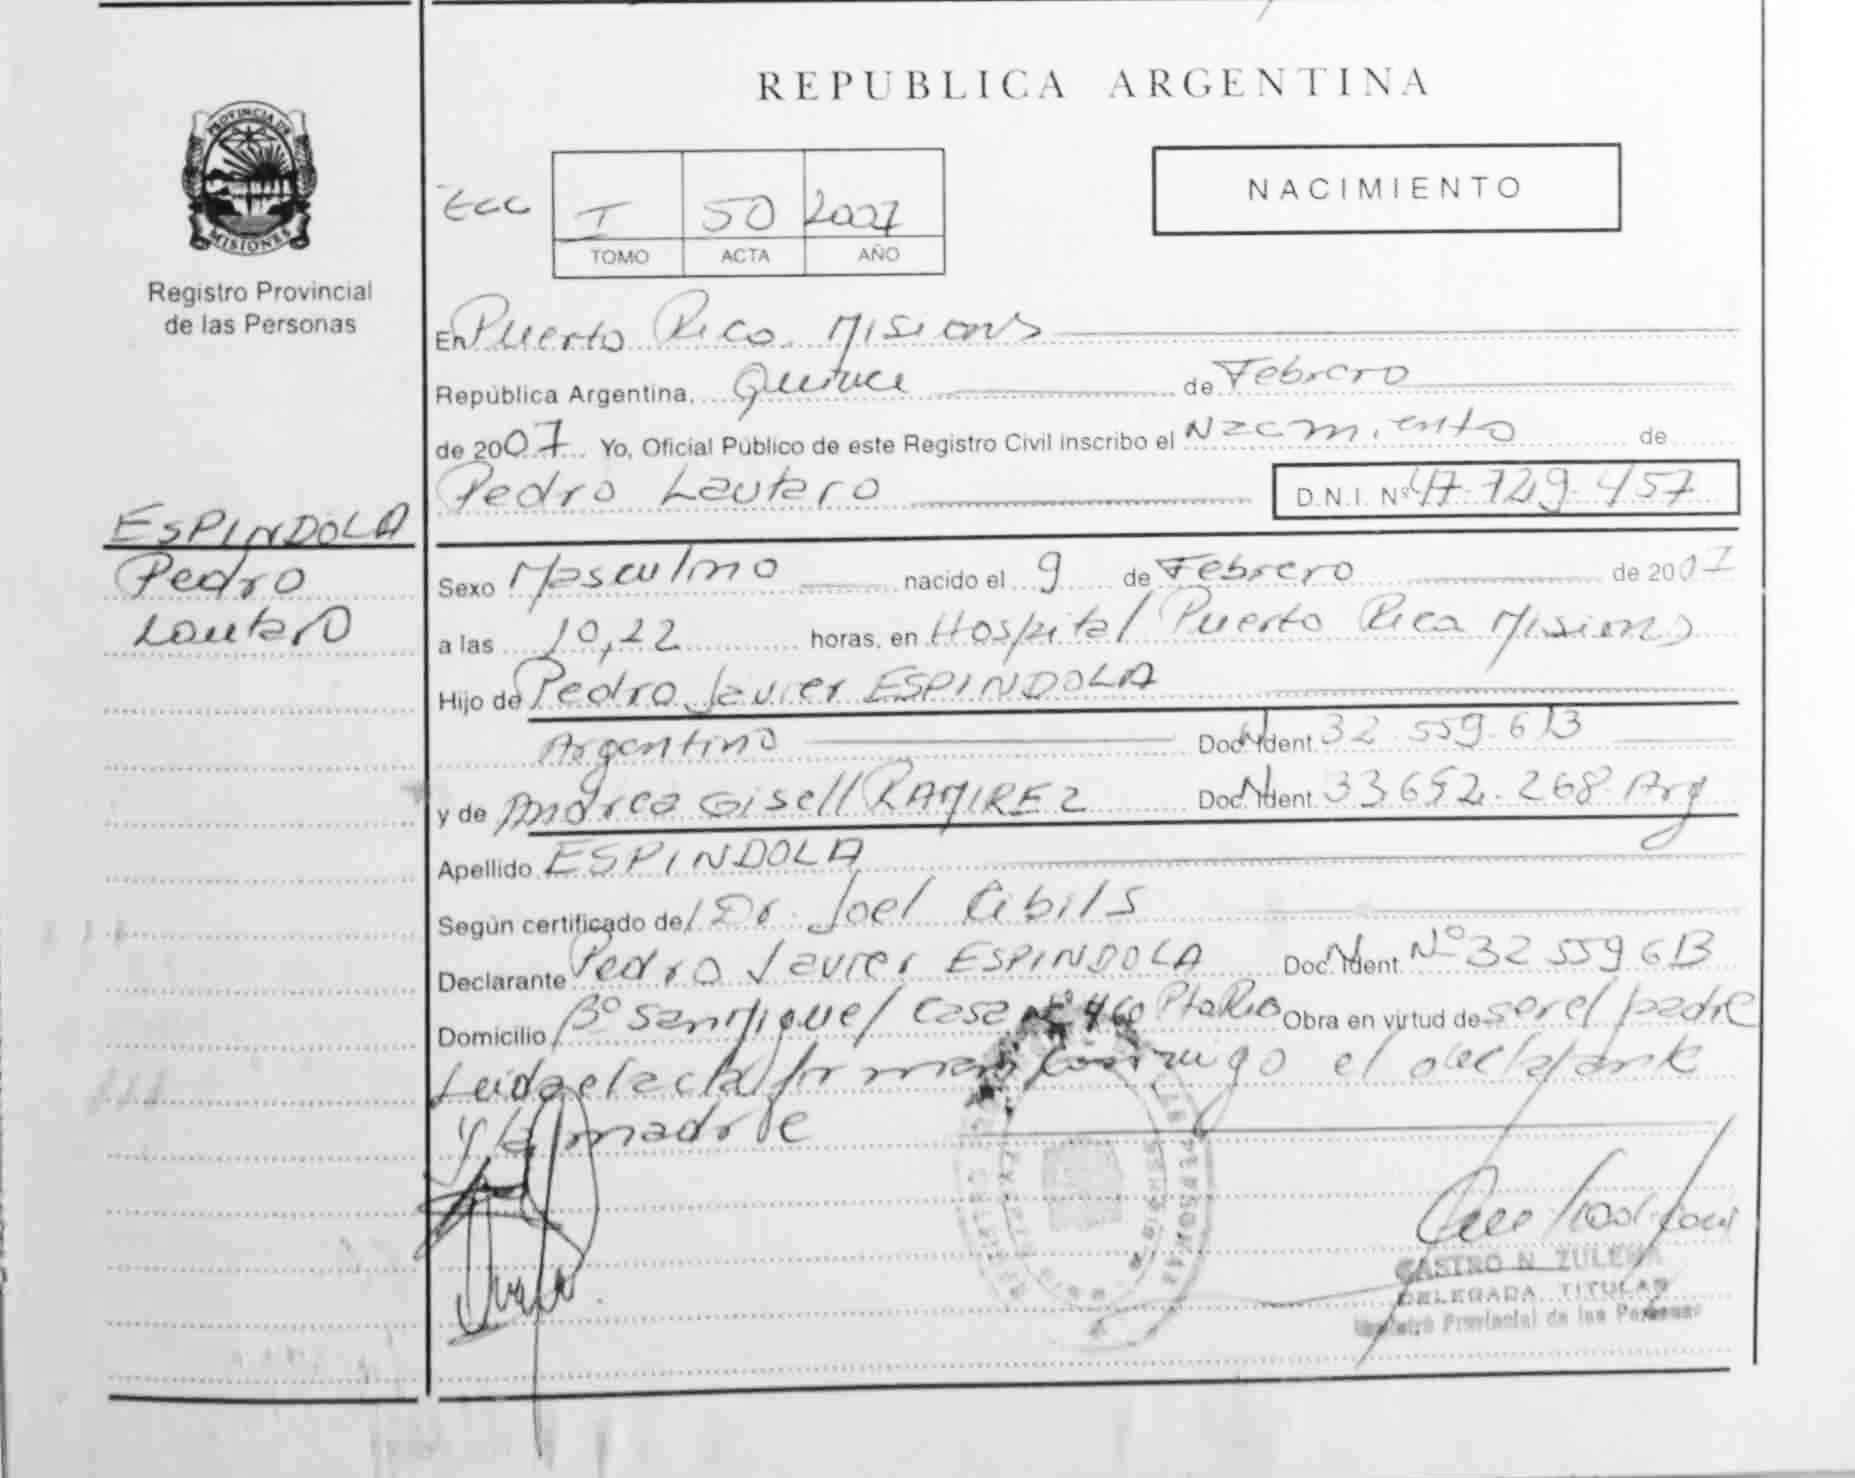 REPUBLICA ARGENTINA
PROVINCIA DE
MISIONES
Registro Provincial
de las Personas
I 50 2007
TOMO ACTA AÑO
NACIMIENTO
En Puerto Rico Misions
República Argentina, Quince de Febrero
de 2007 Yo, Oficial Público de este Registro Civil inscribo el Nacimiento de
Pedro Lautaro D.N.I. Nº 47.729.457
ESPINDOLA
Pedro
Lautaro
Sexo Masculino nacido el 9 de Febrero de 2007
a las 10,22 horas, en Hospital Puerto Rico Misions
Hijo de Pedro Javier ESPINDOLA
Argentino Doc. Ident 32.559.613
y de Andrea Gisell RAMIREZ Doc. Ident 33.652.268 Arg
Apellido ESPINDOLA
Según certificado del Dr. Joel Cibils
Declarante Pedro Javier ESPINDOLA Doc. Ident Nº 32 559 613
Domicilio Bº San Miguel Casa Nº 460 Pto Rico Obra en virtud de ser el padre
Leida el acta firman conmigo el declarante
y la madre
CASTRO N. ZULEMA
DELEGADA TITULAR
Registro Provincial de las Personas